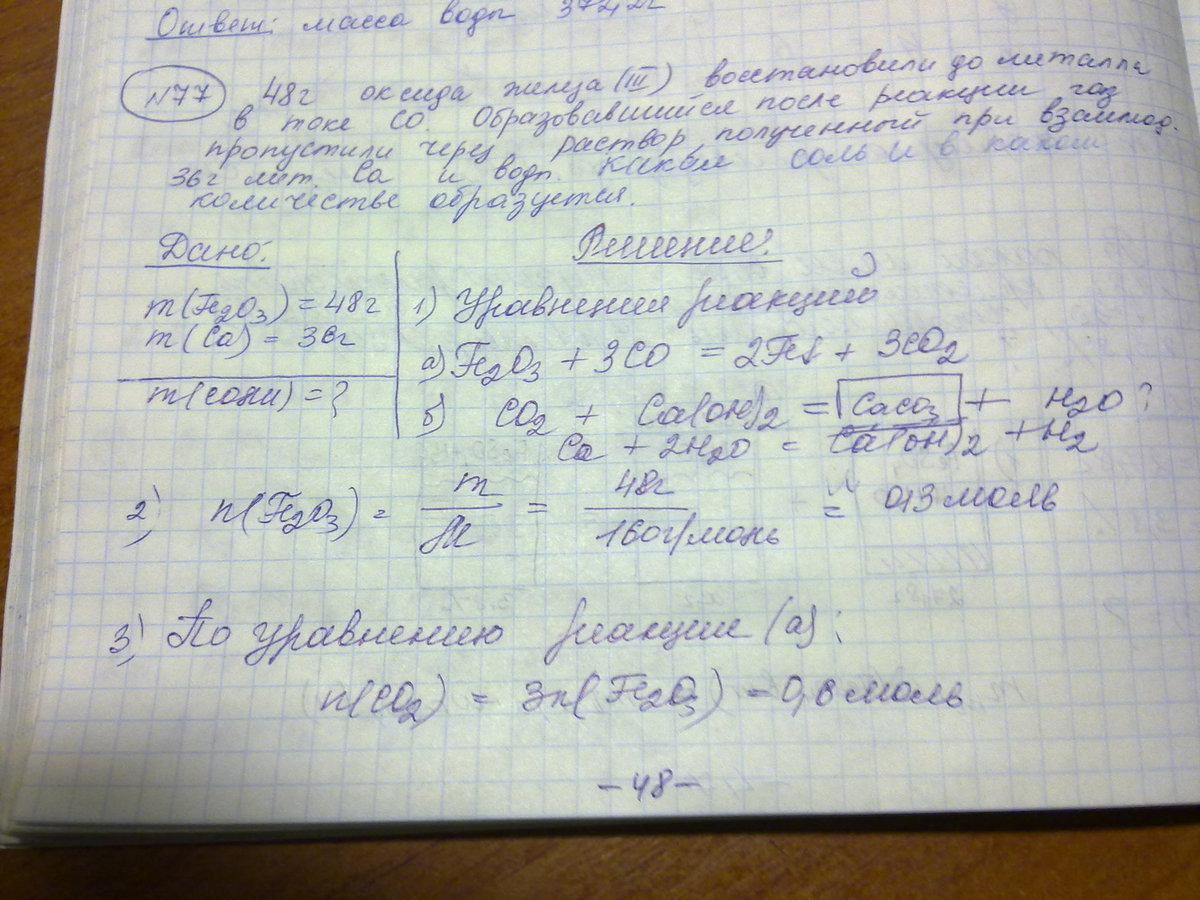 Ответ: масса воды 372,2г
№77 48г оксида железа (III) восстановили до металла
в токе CO. Образовавшийся после реакции газ
пропустили через раствор полученный при взаимод.
36г мет. Ca и воды. Какая соль и в каком
количестве образуется.
Дано:
Решение:
m(Fe2O3) = 48г
1) Уравнения реакций
m(Ca) = 36г
а) Fe2O3 + 3CO = 2Fe↓ + 3CO2
m(соли) = ?
б) CO2 + Ca(OH)2 = CaCO3 + H2O ?
Ca + 2H2O = Ca(OH)2 + H2
2) n(Fe2O3) = m/M = 48г/160г/моль = 0,3 моль
3) По уравнению реакции (а):
n(CO2) = 3n(Fe2O3) = 0,6 моль
- 48 -